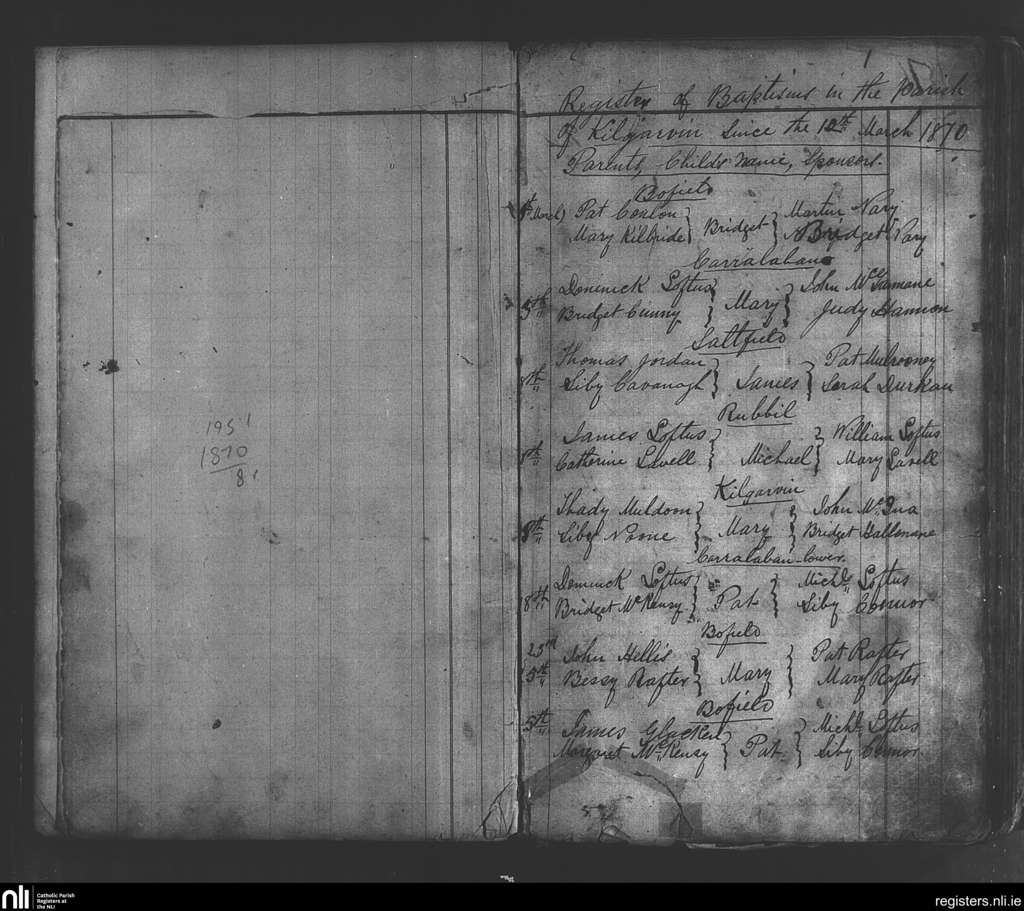 195
1870
8
1
Registry of Baptisms in the Parish
of Kilgarvin since the 12th March 1870
Parents, Childs Name, Sponsors.
Bofield
March Pat Conlon } Bridget } Martin Nary
Mary Kilbride Bridget Nary
Carralabane
Dominick Loftus } Mary } John McNamane
5th Bridget Cunny Judy Hannon
Saltfield
Thomas Jordan Pat Mulrooney
8th Siby Cavanagh } James } Sarah Durkan
Rubbil
James Loftus } } William Loftus
8th Catherine Lavell Michael Mary Lavell
Kilgarvin
Thady Muldoon } Mary } John
8th Siby Noone Bridget Gallenane
Carralaban-lower.
Dominick Loftus } } Michl. Loftus
8th Bridget McKensy Pat Siby Connor
Bofield
23rd John Hellis } } Pat Rafter
5th Bessy Rafter Mary Mary Rafter
Bofield
5th James Glacken } Michl. Loftus
Margaret McKensy } Pat Siby Connor
nli
Catholic Parish
Registers at
the NLI
registers.nli.ie